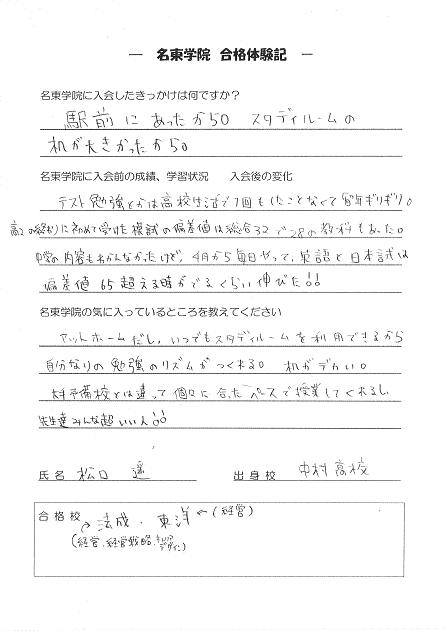 ― 名東学院 合格体験記 ―
名東学院に入会したきっかけは何ですか？
駅前にあったから。スタディルームの
机が大きかったから。
名東学院に入会前の成績、学習状況 入会後の変化
テスト勉強とかは高校生活で1回もしたことなくて毎年ギリギリ。
高2の終わりに初めて受けた模試の偏差値は総合32で28の教科もあった。
中学の内容もわかんなかったけど、4月から毎日やって、英語と日本史は
偏差値65超える時がでるくらい伸びた!!
名東学院の気に入っているところを教えてください
アットホームだし、いつでもスタディルームを利用できるから
自分なりの勉強のリズムがつくれる。机がデカい。
大手予備校とは違って個々に合ったペースで授業してくれるし、
先生達みんな超いい人!!
氏名 松口 遥 出身校 中村高校
合格校 法成・東洋←(経営)
(経営、経営戦略、キャリアデザイン)